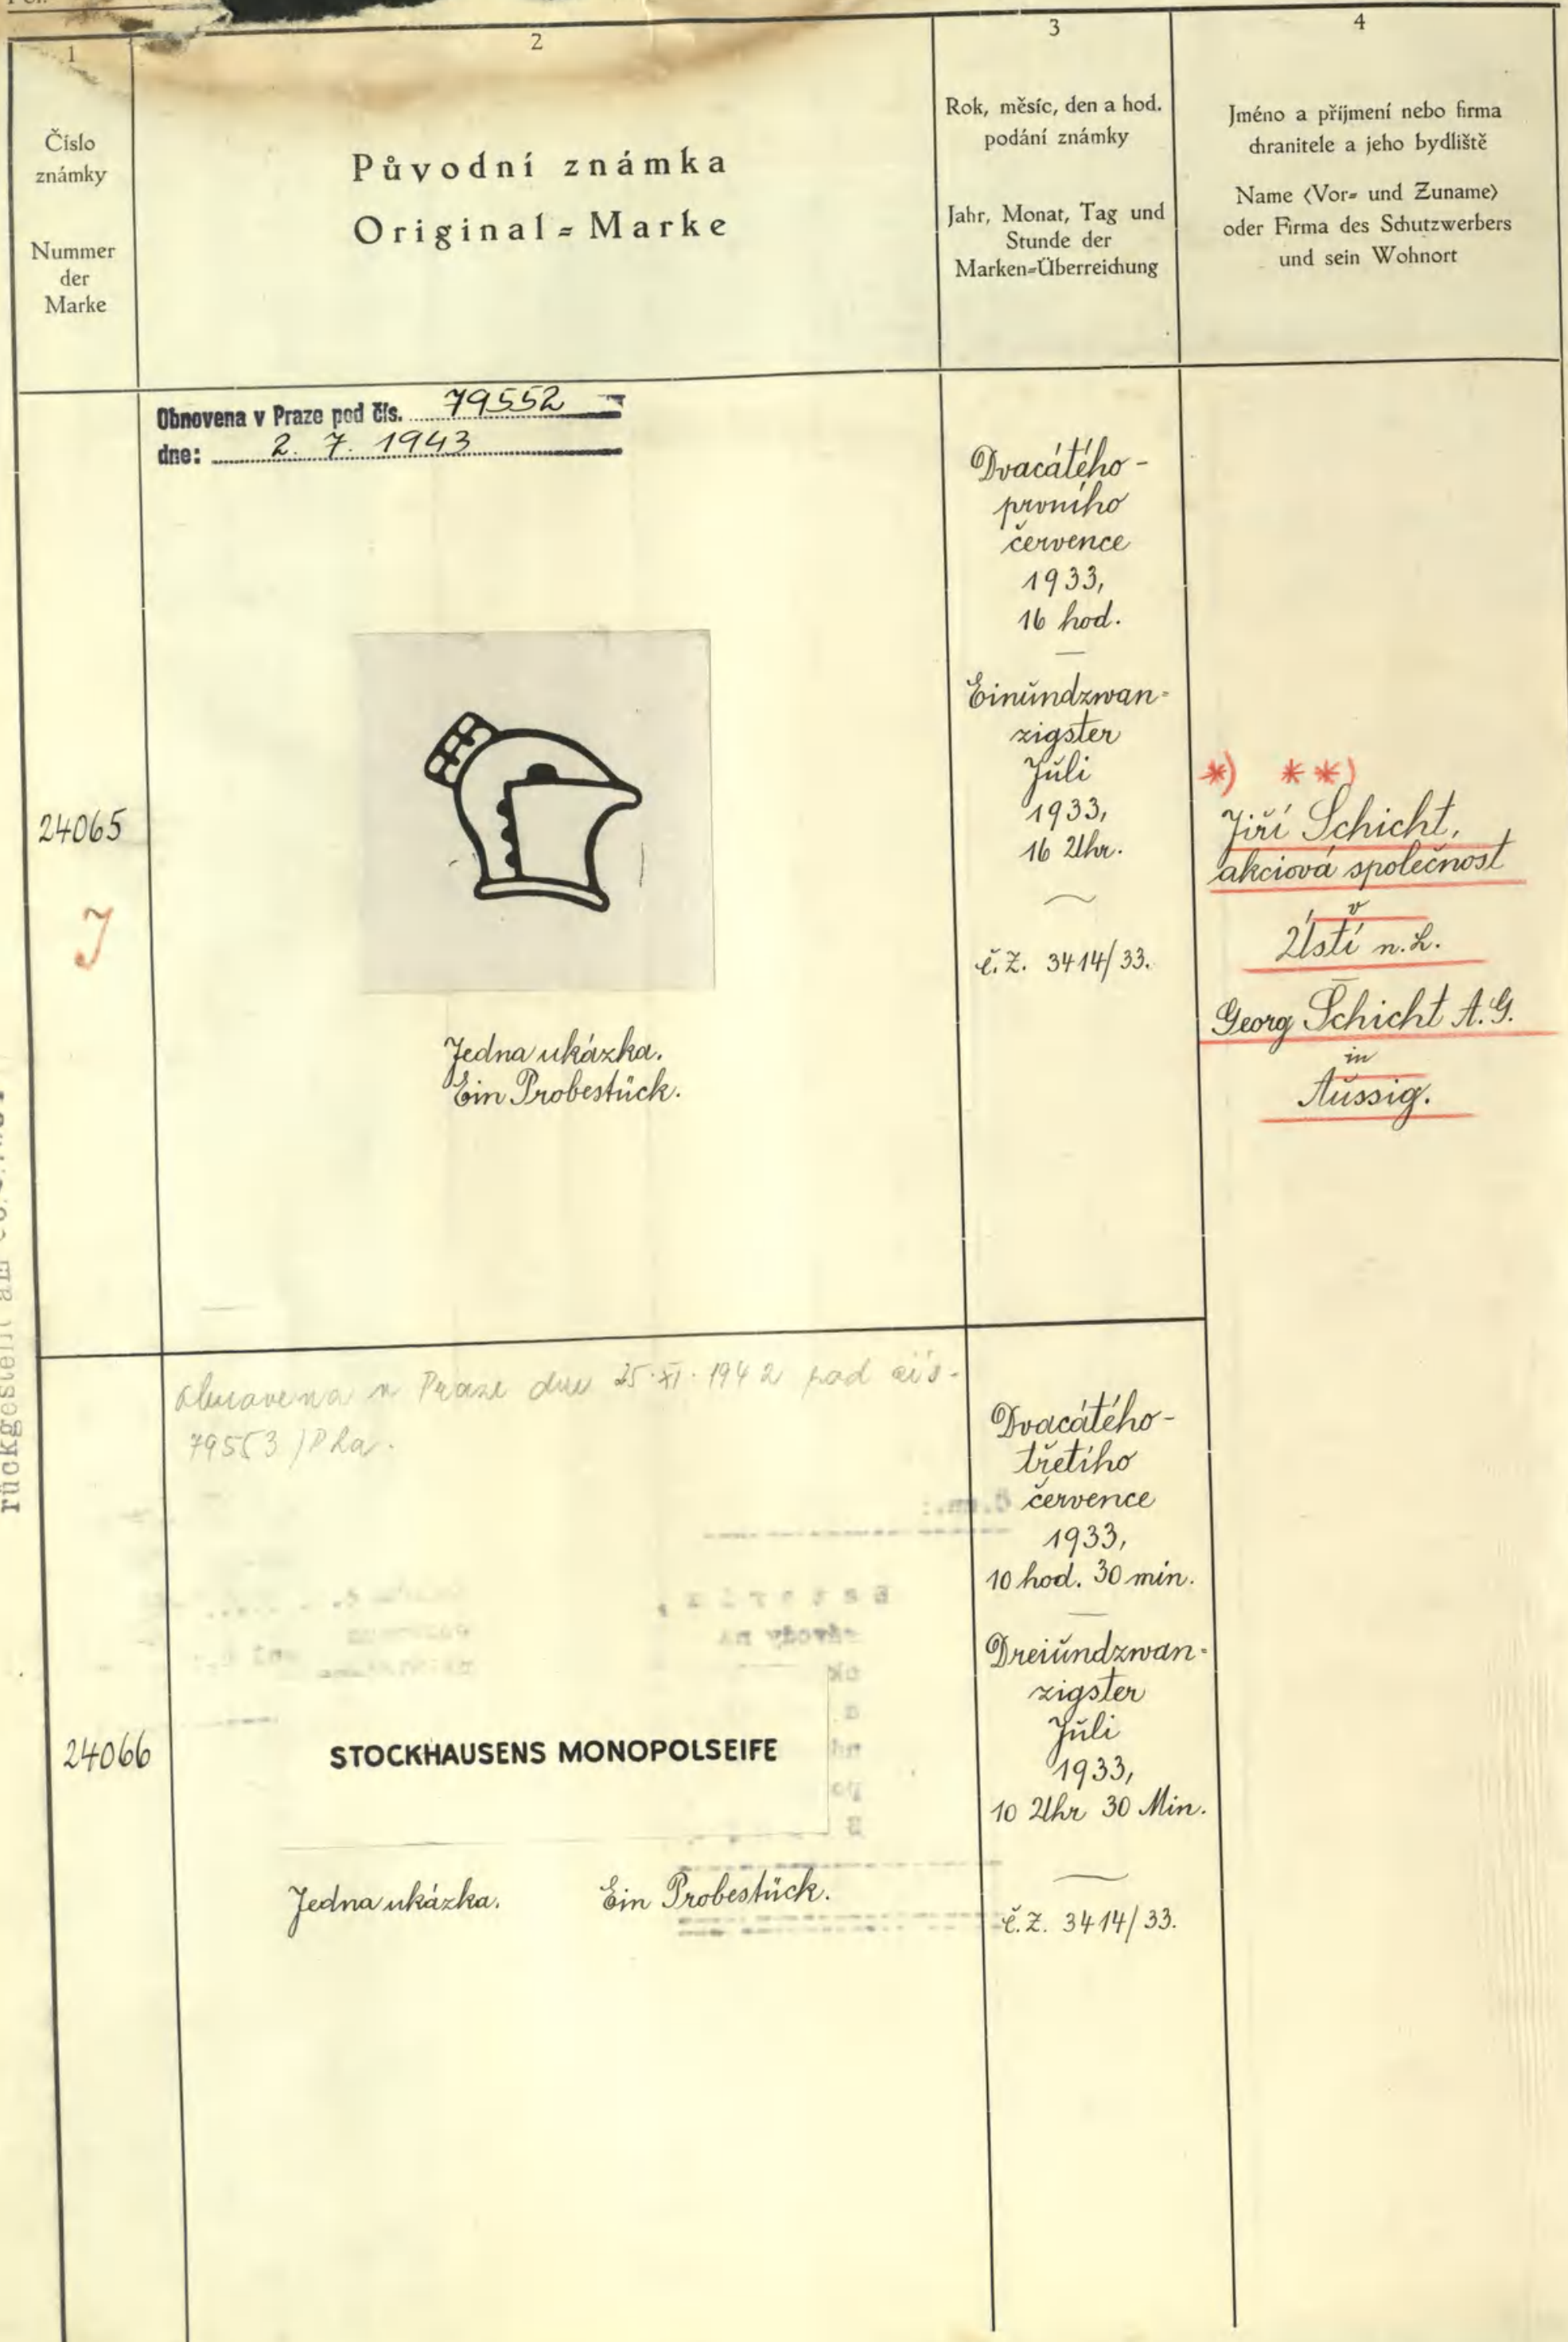 1
2
3
4
Číslo
známky
Nummer
der
Marke
Původní známka
Original=Marke
Rok, měsíc, den a hod.
podání známky
Jahr, Monat, Tag und
Stunde der
Marken=Überreichung
Jméno a příjmení nebo firma
chranitele a jeho bydliště
Name (Vor= und Zuname)
oder Firma des Schutzwerbers
und sein Wohnort
24065
J
Obnovena v Praze pod čís. 79552
dne: 2. 7. 1943
Jedna ukázka.
Ein Probestück.
Dvacátého-
prvního
července
1933,
16 hod.
Einŭndzwan=
zigster
Jŭli
1933,
16 Uhr.
č.Z. 3414/33.
*) **)
Jiří Schicht,
akciová společnost
v
Ústí n.L.
Georg Schicht A.G.
in
Aŭssig.
rückgestellt am
24066
Obnovena v Praze dne 25.XI.1942 pod čís.
79553/Pha.
STOCKHAUSENS MONOPOLSEIFE
Jedna ukázka. Ein Probestück.
Dvacátého-
třetího
července
1933,
10 hod. 30 min.
Dreiŭndzwan=
zigster
Jŭli
1933,
10 Uhr 30 Min.
č.Z. 3414/33.